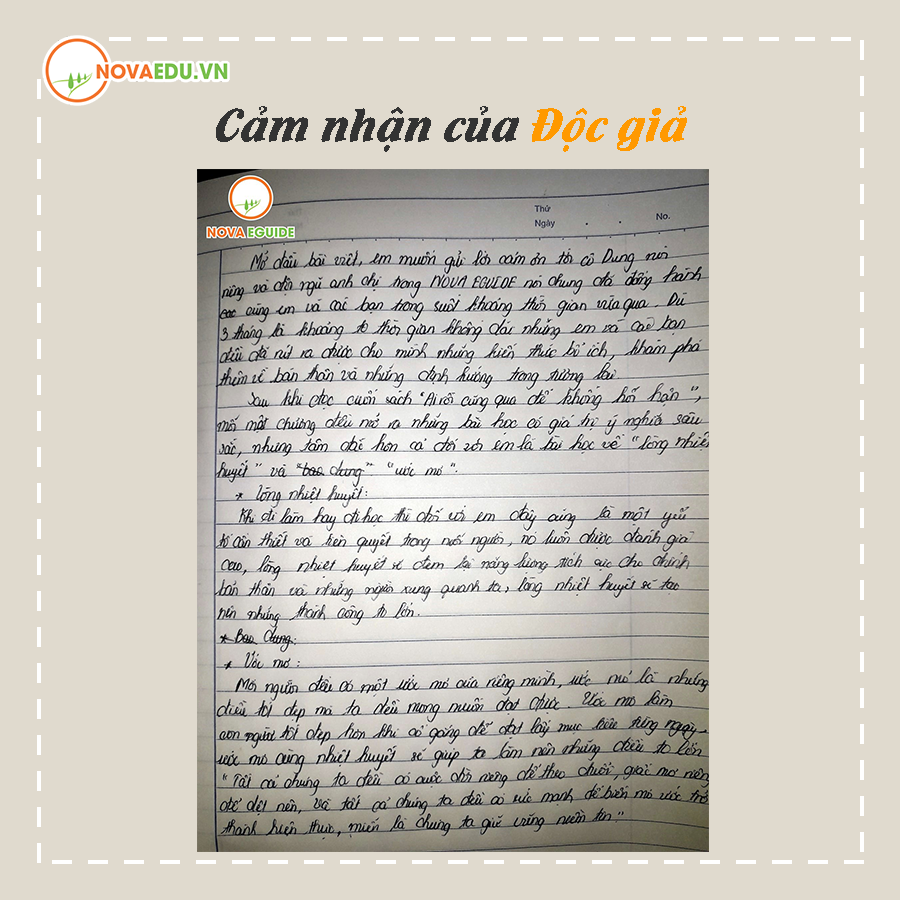 NOVAEDU.VN
Cảm nhận của Độc giả
NOVA EGUIDE
Thứ
Ngày . .
No.
Mở đầu bài viết, em muốn gửi lời cám ơn tới cô Dung nói
riêng và đội ngũ anh chị trong NOVA EGUIDE nói chung đã đồng hành
cùng em và các bạn trong suốt khoảng thời gian vừa qua. Dù
3 tháng là khoảng thời gian không dài nhưng em và các bạn
đều đã rút ra được cho mình những kiến thức bổ ích, khám phá
thêm về bản thân và những định hướng trong tương lai
Sau khi đọc cuốn sách "Ai rồi cũng qua để không hối hận",
mỗi một chương đều mở ra những bài học có giá trị ý nghĩa sâu
sắc, nhưng tâm đắc hơn cả đối với em là bài học về "lòng nhiệt
huyết" và "bao dung" "ước mơ".
* Lòng nhiệt huyết:
Khi đi làm hay đi học thì đối với em đây cũng là một yếu
tố cần thiết và tiên quyết trong mỗi người, nó luôn được đánh giá
cao, lòng nhiệt huyết sẽ đem lại năng lượng tích cực cho chính
bản thân và những người xung quanh ta, lòng nhiệt huyết sẽ tạo
nên những thành công to lớn.
* Bao dung:
* Ước mơ:
Mỗi người đều có một ước mơ của riêng mình, ước mơ là những
điều tốt đẹp mà ta đều mong muốn đạt được. Ước mơ làm
con người tốt đẹp hơn khi cố gắng để đạt lấy mục tiêu từng ngày.
ước mơ cùng nhiệt huyết sẽ giúp ta làm nên những điều to lớn
"Tất cả chúng ta đều có cuộc đời riêng để theo đuổi, giấc mơ riêng
để dệt nên, và tất cả chúng ta đều có sức mạnh để biến mơ ước trở
thành hiện thực, miễn là chúng ta giữ vững niềm tin."